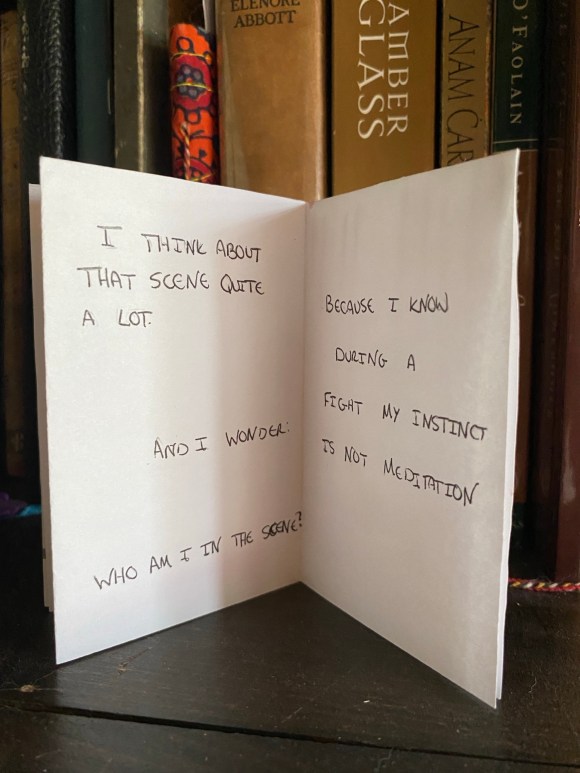 ELENORE
ABBOTT
AMBER
GLASS
ANAM CAR
O'FAOLAIN
I THINK ABOUT
THAT SCENE QUITE
A LOT.
AND I WONDER:
WHO AM I IN THE SCENE?
BECAUSE I KNOW
DURING A
FIGHT MY INSTINCT
IS NOT MEDITATION